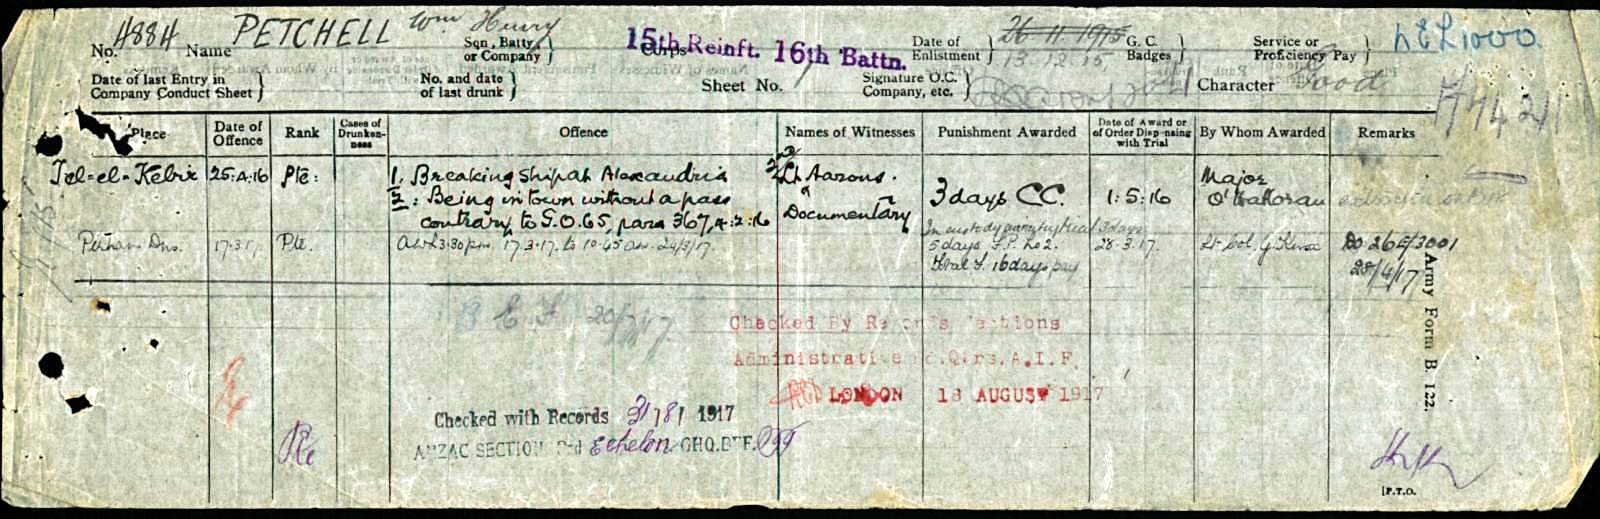 No. 4884 Name PETCHELL Wm Henry Sqn, Batty or Company } 15th Reinft. 16th Battn. Corps Date of Enlistment } 26 11 1915 13.12.15 G. C. Badges } Service or Proficiency Pay }
Date of last Entry in Company Conduct Sheet } No. and date of last drunk } Sheet No. 1 Signature O.C. Company, etc. } Character Good
Place Date of Offence Rank Cases of Drunkenness Offence Names of Witnesses Punishment Awarded Date of Award or of Order Dispensing with Trial By Whom Awarded Remarks
Tel-el-Kebir 25.4.16 Pte: 1. Breaking Ship at Alexandria 2nd Lt Aarons. 3 days CC. 1.5.16 Major
2: Being in town without a pass Documentary
contrary to G.O.65, para 367, 4:2:16
Perham Dns. 17.3.17. Pte. A.W.L 3.30pm. 17.3.17. to 10.45 am. 24/3/17. In custody awaiting trial 3 days
5 days F.P. No 2. 28.3.17. Lt Col.
Total F. 16 days pay 28/4/17
B E F 20/7/17.
Checked By Records Sections
Administrative H.Qrs. A.I.F.
LONDON 18 AUGUST 1917
Checked with Records 31/8/1917
ANZAC SECTION 3rd Echelon GHQ. BEF.
Pte
Army Form B. 122.
[P.T.O.